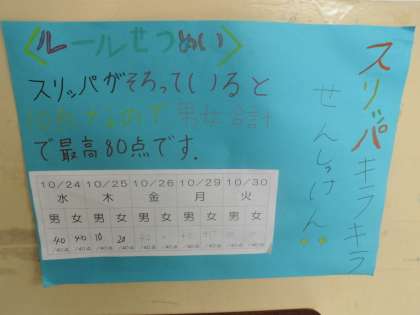 スリッパキラキラ
せんしゅけん
〈ルールせつめい〉
スリッパがそろっていると
なので男女合計
で最高80点です.
10/24 10/25 10/26 10/29 10/30
水 木 金 月 火
男 女 男 女 男 女 男 女 男 女
40 40 10 20
/40点 /40点 /40点 /40点 /40点 /40点 /40点 /40点 /40点 /40点